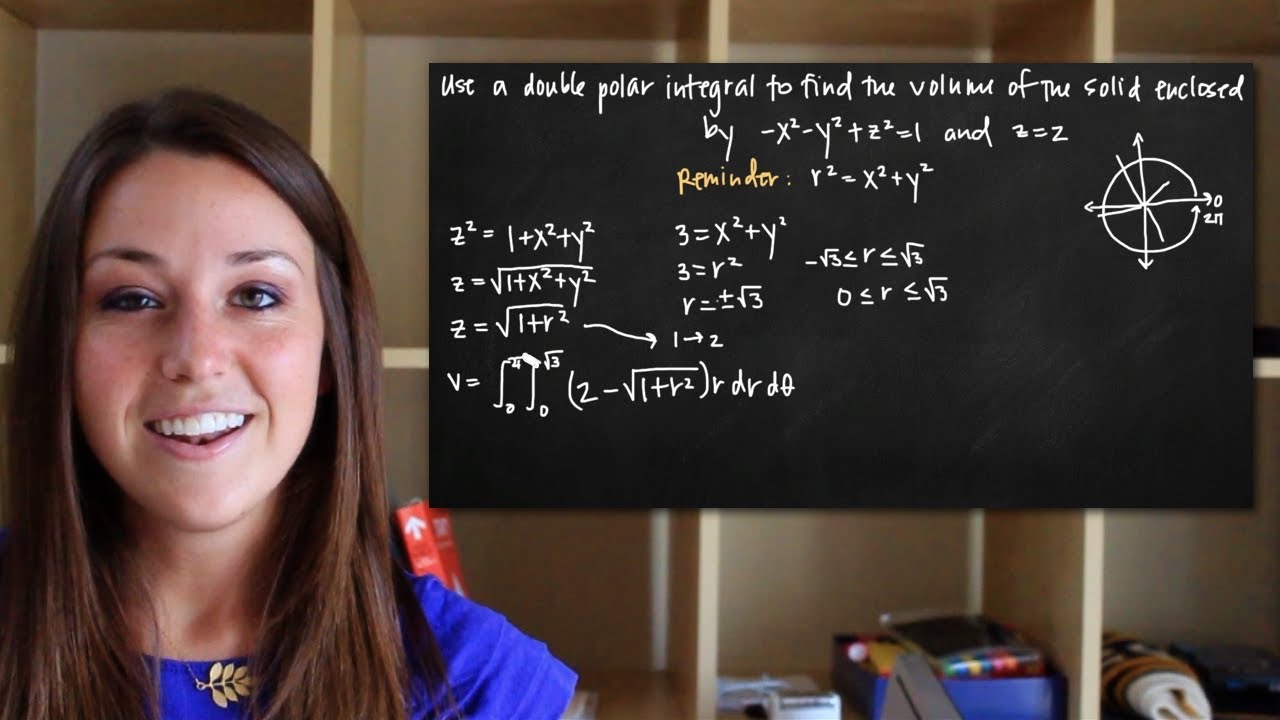 Use a double polar integral to find the volume of the solid enclosed
by -x²-y²+z²=1 and z=2
Reminder: r²=x²+y²
0
2π
z²=1+x²+y²
z=√(1+x²+y²)
z=√(1+r²)
3=x²+y²
3=r²
r=±√3
-√3≤r≤√3
0≤r≤√3
1→2
V=∫₀ ∫₀^√3 (2-√(1+r²))r dr dθ